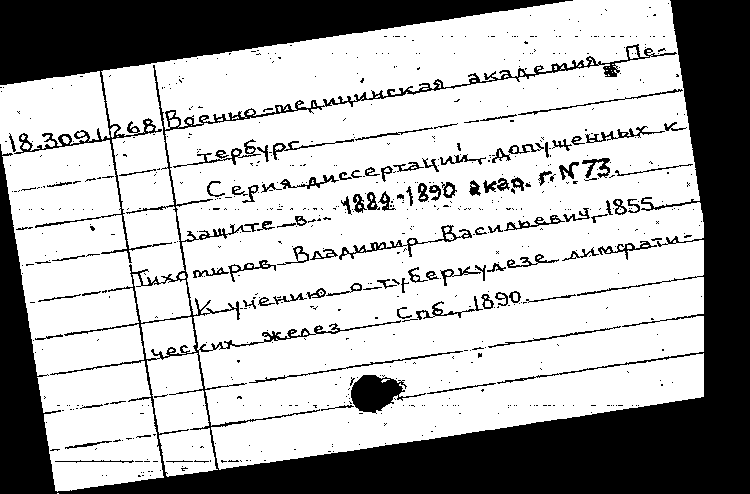 18.309.1.268. Военно-медицинская академия. Пе-
тербург.
Серия диссертаций, допущенных к
защите в 1889-1890 акад. г. N 73.
Тихомиров, Владимир Васильевич, 1855
К учению о туберкулезе лимфати-
ческих желез Спб., 1890.